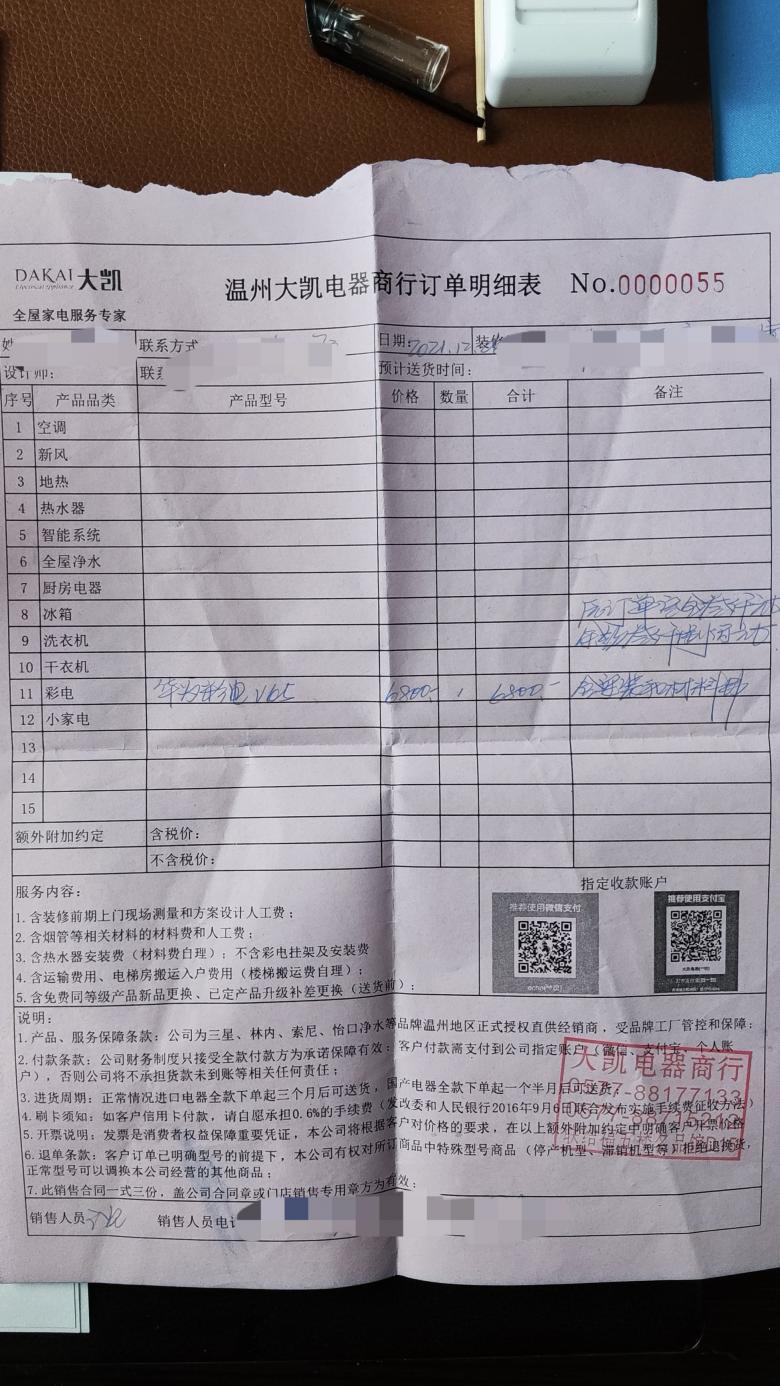 DAKAI大凯
Electrical appliance
全屋家电服务专家
温州大凯电器商行订单明细表 No.0000055
联系方式 日期: 2021.12
设计师: 预计送货时间:
序号 产品品类 产品型号 价格 数量 合计 备注
1 空调
2 新风
3 地热
4 热水器
5 智能系统
6 全屋净水
7 厨房电器
8 冰箱
9 洗衣机
10 干衣机
11 彩电 华为 V65 6800.- 1 6800.- 材料
12 小家电
13
14
15
额外附加约定 含税价:
不含税价:
服务内容:
1. 含装修前期上门现场测量和方案设计人工费;
2. 含烟管等相关材料的材料费和人工费;
3. 含热水器安装费(材料费自理);不含彩电挂架及安装费
4. 含运输费用、电梯房搬运入户费用(楼梯搬运费自理);
5. 含免费同等级产品新品更换、已定产品升级补差更换(送货前);
指定收款账户
推荐使用微信支付
推荐使用支付宝
说明:
1. 产品、服务保障条款:公司为三星、林内、索尼、怡口净水等品牌温州地区正式授权直供经销商,受品牌工厂管控和保障;
2. 付款条款:公司财务制度只接受全款付款方为承诺保障有效;客户付款需支付到公司指定账户(微信、支付宝、个人账
户),否则公司将不承担货款未到账等相关任何责任;
3. 进货周期:正常情况进口电器全款下单起三个月后可送货,国产电器全款下单起一个半月后可送货;
4. 刷卡须知:如客户信用卡付款,请自愿承担0.6%的手续费(发改委和人民银行2016年9月6日联合发布实施手续费征收方法)
5. 开票说明:发票是消费者权益保障重要凭证,本公司将根据客户对价格的要求,在以上额外附加约定中明确客户开票价格
6. 退单条款:客户订单已明确型号的前提下,本公司有权对所订商品中特殊型号商品(停产机型、滞销机型等)拒绝退换货,
正常型号可以调换本公司经营的其他商品;
7. 此销售合同一式三份,盖公司合同章或门店销售专用章方为有效;
大凯电器商行
0577-88177133
销售人员 销售人员电话